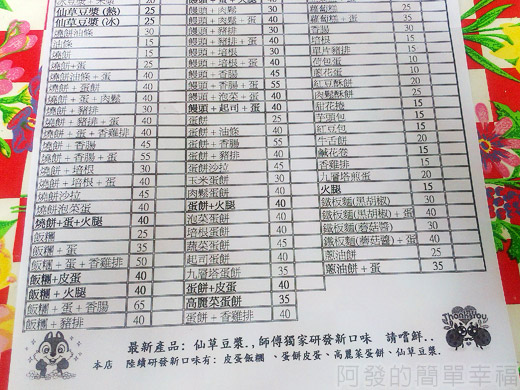 仙草豆漿(熱) 25
仙草豆漿(冰) 25
燒餅油條 30
油條 15
燒餅 15
燒餅+蛋 25
燒餅油條+蛋 40
燒餅+蛋餅 40
燒餅+蛋+肉鬆 40
燒餅+豬排 30
燒餅+豬排+蛋 40
燒餅+蛋+香雞排 40
燒餅+香腸 45
燒餅+香腸+蛋 55
燒餅+培根 30
燒餅+培根+蛋 40
燒餅沙拉 45
燒餅泡菜蛋 40
燒餅+蛋+火腿 40
飯糰 25
飯糰+蛋 35
飯糰+蛋+香雞排 50
飯糰+皮蛋 40
飯糰+火腿 40
飯糰+蛋+香腸 65
飯糰+豬排 40
饅頭+肉鬆 30
饅頭+肉鬆+蛋 40
饅頭+豬排 30
饅頭+豬排+蛋 40
饅頭+培根 30
饅頭+培根+蛋 40
饅頭+香腸 45
饅頭+香腸+蛋 55
饅頭+泡菜+蛋 40
饅頭+起司+蛋 40
蛋餅 25
蛋餅+油條 40
蛋餅+香腸 55
蛋餅+豬排 40
蛋餅沙拉 45
玉米蛋餅 30
肉鬆蛋餅 40
蛋餅+火腿 40
泡菜蛋餅 40
培根蛋餅 40
蔬菜蛋餅 45
起司蛋餅 40
九層塔蛋餅 35
蛋餅+皮蛋 40
高麗菜蛋餅 35
蛋餅+香雞排 40
蘿蔔糕 25
蘿蔔糕+蛋 35
香腸 30
培根 15
單片豬排 15
荷包蛋 10
蔥花蛋 10
紅豆酥餅 20
肉鬆酥餅 25
甜花捲 15
芋頭包 15
紅豆包 15
牛舌餅 20
鹹花卷 15
香雞排 25
九層塔煎蛋 20
火腿 15
鐵板麵(黑胡椒) 30
鐵板麵(黑胡椒)+蛋 40
鐵板麵(蘑菇醬) 30
鐵板麵(蘑菇醬)+蛋 40
蔥油餅 25
蔥油餅+蛋 35
最新產品: 仙草豆漿..師傅獨家研發新口味 請嚐鮮..
本店 陸續研發新口味有: 皮蛋飯糰、蛋餅皮蛋、高麗菜蛋餅、仙草豆漿.
Thank You
阿發的簡單幸福